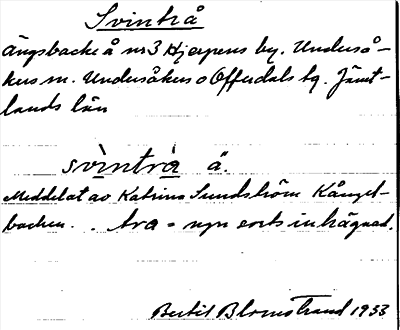 Svintrå
Ängsbacke å nr 3 Hjerpens by. Underså-
kers sn. Undersåkers o Offerdals tg. Jämt-
lands län
svìntrå ä.
Meddelat av Katrina Sundström Kånget-
backen. . tra = nyn sorts inhägnad.
Bertil Blomstrand 1933